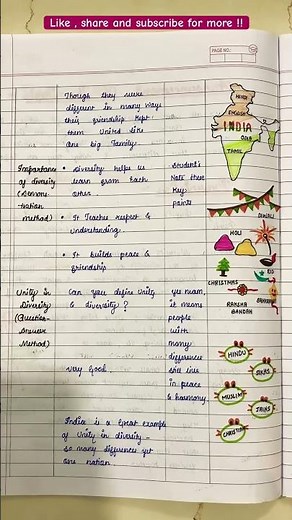 Like , share and subscribe for more !!
PAGE NO.:
Though they were
different in many ways
their friendship kept
them United like
one big family.
HINDI
ENGLISH
INDIA
TAMIL
Importance
of diversity
(Demons-
-tration
method)
• Diversity helps us
learn from Each
other.
• It Teaches respect &
understanding.
• It builds peace &
friendship
Student's
Note there
Key
points
DIWALI
HOLI
EID
CHRISTMAS
RAKSHA
BANDAN
Unity in
Diversity
(Question-
Answer
Method)
Can you define Unity
& diversity?
Very Good.
yes mam,
it means
people
with
many
differences
still live
in peace
& harmony.
India is a Great example
of Unity in diversity –
so many differences yet
one nation.
HINDU
SIKHS
MUSLIM
JAINS
CHRISTIAN